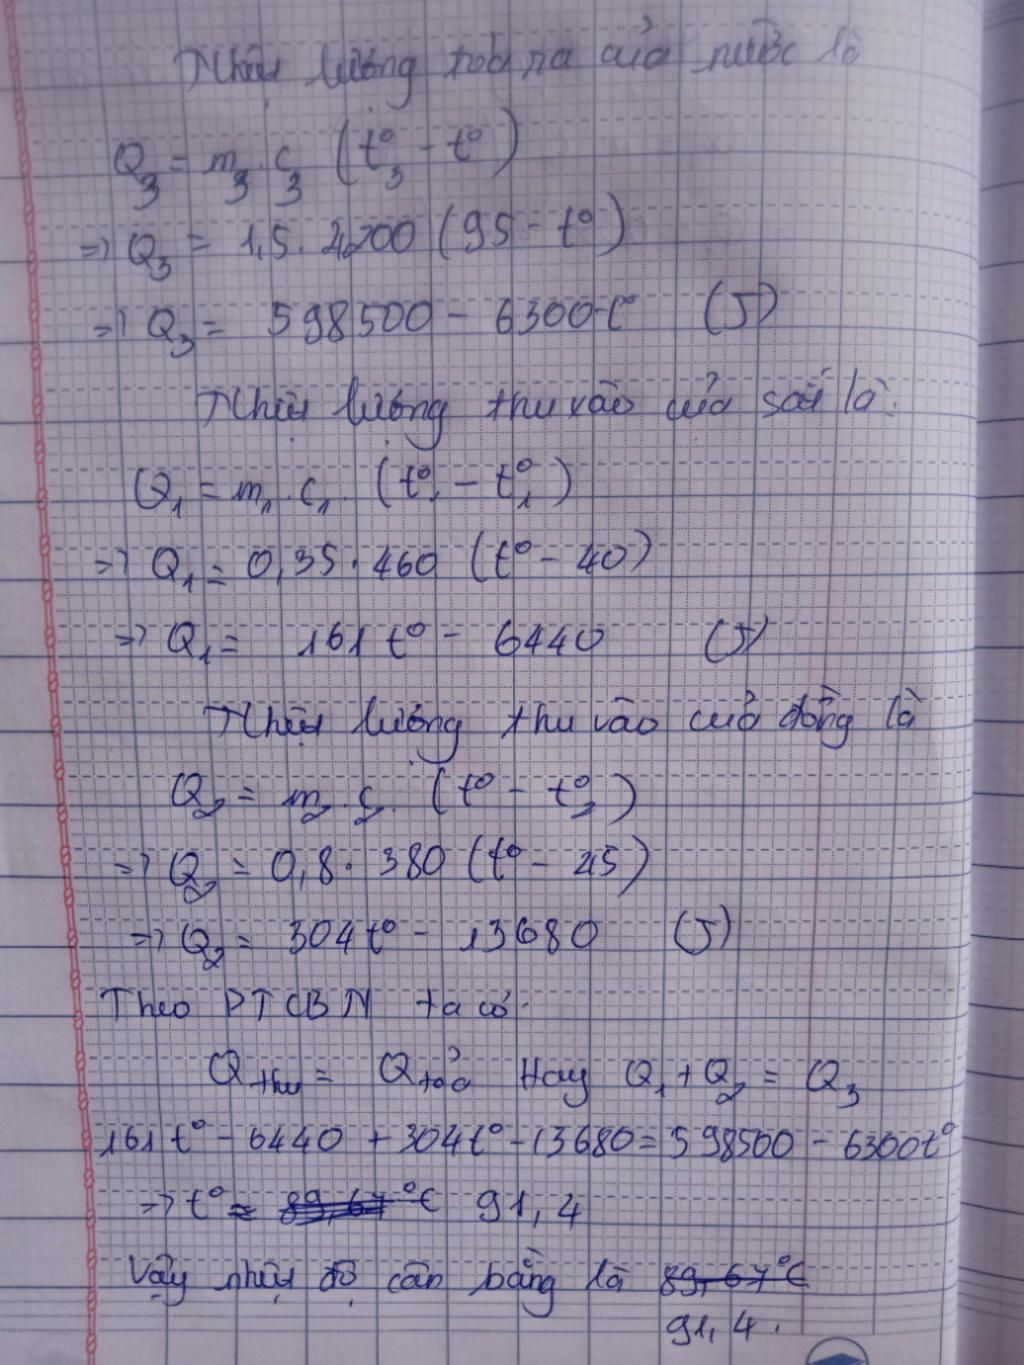 Nhiệt lượng toả ra của nước là
Q₃ = m₃.c₃ (t°₃ - t°)
=> Q₃ = 1,5.4200 (95 - t°)
=> Q₃ = 598500 - 6300t° (J)
Nhiệt lượng thu vào của sắt là.
Q₁ = m₁.c₁. (t° - t°₁)
=> Q₁ = 0,35.460 (t° - 40)
=> Q₁ = 161t° - 6440 (J)
Nhiệt lượng thu vào của đồng là
Q₂ = m₂.c₂. (t° - t°₂)
=> Q₂ = 0,8.380 (t° - 45)
=> Q₂ = 304t° - 13680 (J)
Theo PTCBN ta có.
Qthu = Qtoả Hay Q₁ + Q₂ = Q₃
161t° - 6440 + 304t° - 13680 = 598500 - 6300t°
=> t° ≈ 89,67°C 91,4
Vậy nhiệt độ cân bằng là 89,67°C
91,4.